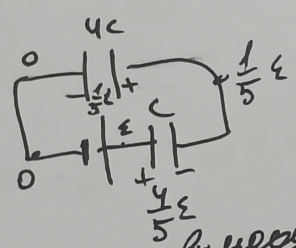 4C
0
- 1/5 ε +
1/5 ε
ε
C
0
+ -
4/5 ε